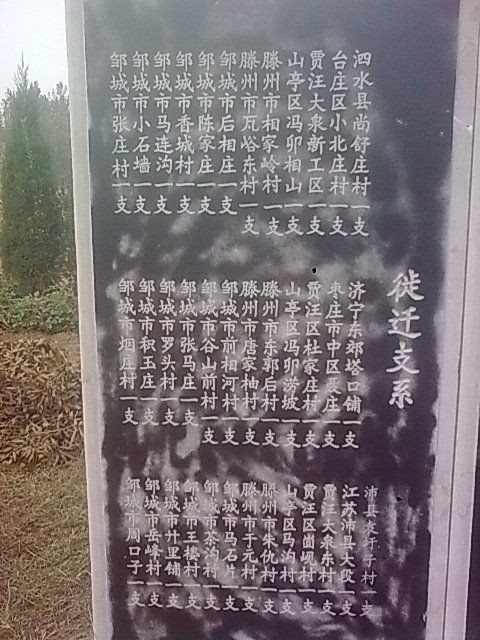 徙迁支系
泗水县尚舒庄村一支
台庄区小北庄村一支
贾汪大泉新工区一支
山亭区冯卯相山一支
滕州市相家岭村一支
滕州市瓦峪东村一支
邹城市后相庄一支
邹城市陈家庄一支
邹城市香城村一支
邹城市马连沟一支
邹城市小石墙一支
邹城市张庄村一支
济宁东郊塔口铺一支
枣庄市中区聂庄一支
贾汪区杜家庄村一支
山亭区冯卯涝坡一支
滕州市东郭后村一支
滕州市唐家柚村一支
邹城市前相河村一支
邹城市谷山前村一支
邹城市张马庄一支
邹城市罗头村一支
邹城市积玉庄一支
邹城市烟庄村一支
沛县圩子村一支
江苏沛县大段一支
贾汪大泉东村一支
贾汪区崮岘村一支
山亭区马沟村一支
滕州市朱仇村一支
滕州市于元村一支
邹城市马石片一支
邹城市茶沟村一支
邹城市王楼村一支
邹城市卄里铺一支
邹城市岳峰村一支
邹城市周口子一支